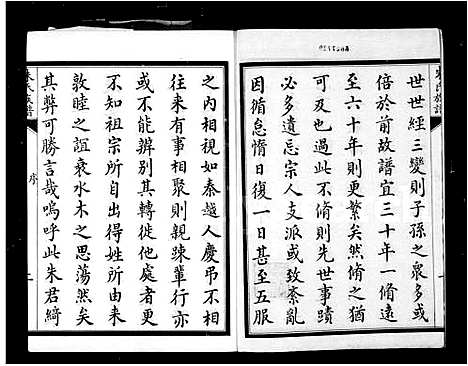 朱氏族譜
世世經三變則子孫之衆多或
倍於前故譜宜三十年一脩遠
至六十年則更繁矣然脩之猶
必多遺忘宗人支派或致紊亂
因循怠惰日復一日甚至五服
之內相視如秦越人慶弔不相
往來有事相聚則親踈輩行亦
或不能辨别其轉徙他處者更
不知祖宗所自出得姓所由來
敦睦之誼衰水木之思蕩然矣
其弊可勝言哉嗚呼此朱君綺
朱氏族譜
序